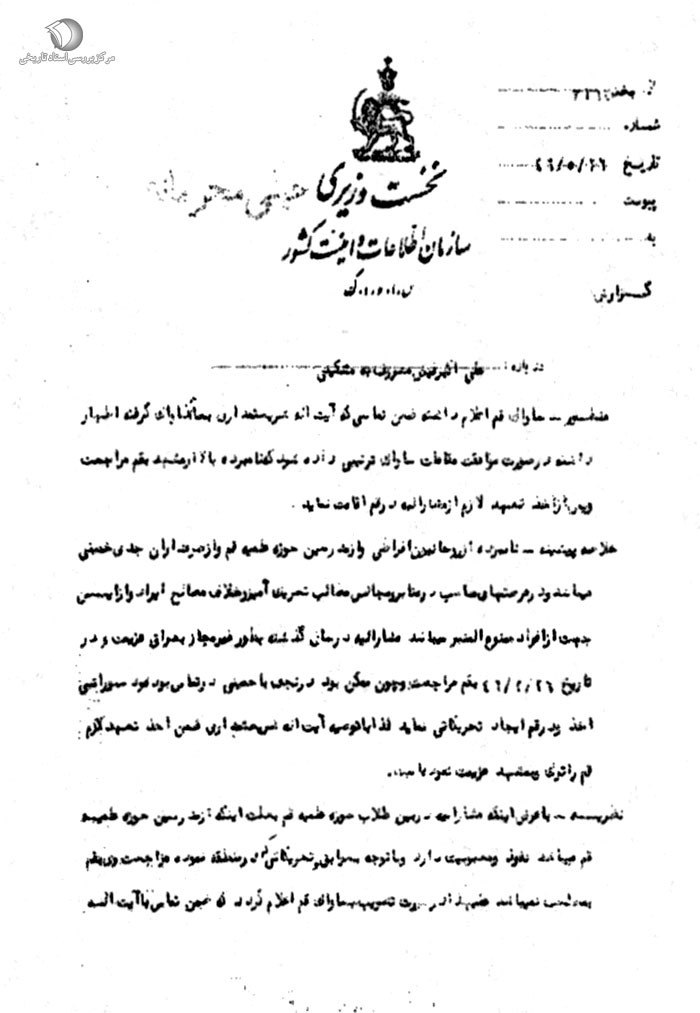 مرکز بررسی اسناد تاریخی
از بخش ۳۱۶
شماره
تاریخ ۴۶/۵/۲۶
پیوست
به
گزارش
خیلی محرمانه
نخست وزیری
سازمان اطلاعات و امنیت کشور
س.ا.و.ا.ک
درباره: علی اکبر فیض معروف به مشکینی
منظور - ساواک قم اعلام داشته ضمن تماسی که آیت اله شریعتمداری با ساواک گرفته اظهار
داشته در صورت موافقت مقامات ساواک ترتیبی داده شود که نامبرده بالا از مشهد بقم مراجعت
و پس از اخذ تعهد لازم از مشارالیه در قم اقامت نماید.
خلاصه پیشینه - نامبرده از روحانیون افراطی و از مدرسین حوزه علمیه قم و از طرفداران جدی خمینی
میباشد و در فرصتهای مناسب در منابر و مجالس مطالب تحریک آمیز و خلاف مصالح ایراد و از این
جهت از افراد ممنوع المنبر میباشد مشارالیه در سال گذشته بطور غیرمجاز بعراق عزیمت و در
تاریخ ۴۶/۲/۲۶ بقم مراجعت و چون ممکن بود در نجف با خمینی در تماس بوده و دستوراتی
اخذ و در قم ایجاد تحریکاتی نماید لذا با توصیه آیت اله شریعتمداری ضمن اخذ تعهد لازم
قم را ترک و بمشهد عزیمت نموده است.
نظریه - با عرض اینکه مشارالیه در بین طلاب حوزه علمیه قم بعلت اینکه از مدرسین حوزه علمیه
قم میباشد نفوذ و محبوبیت دارد و با توجه بسوابق و تحریکاتی که در منطقه نموده مراجعت وی بقم
بمصلحت نمیباشد در صورت تصویب بساواک قم اعلام گردد که ضمن تماس با آیت اله